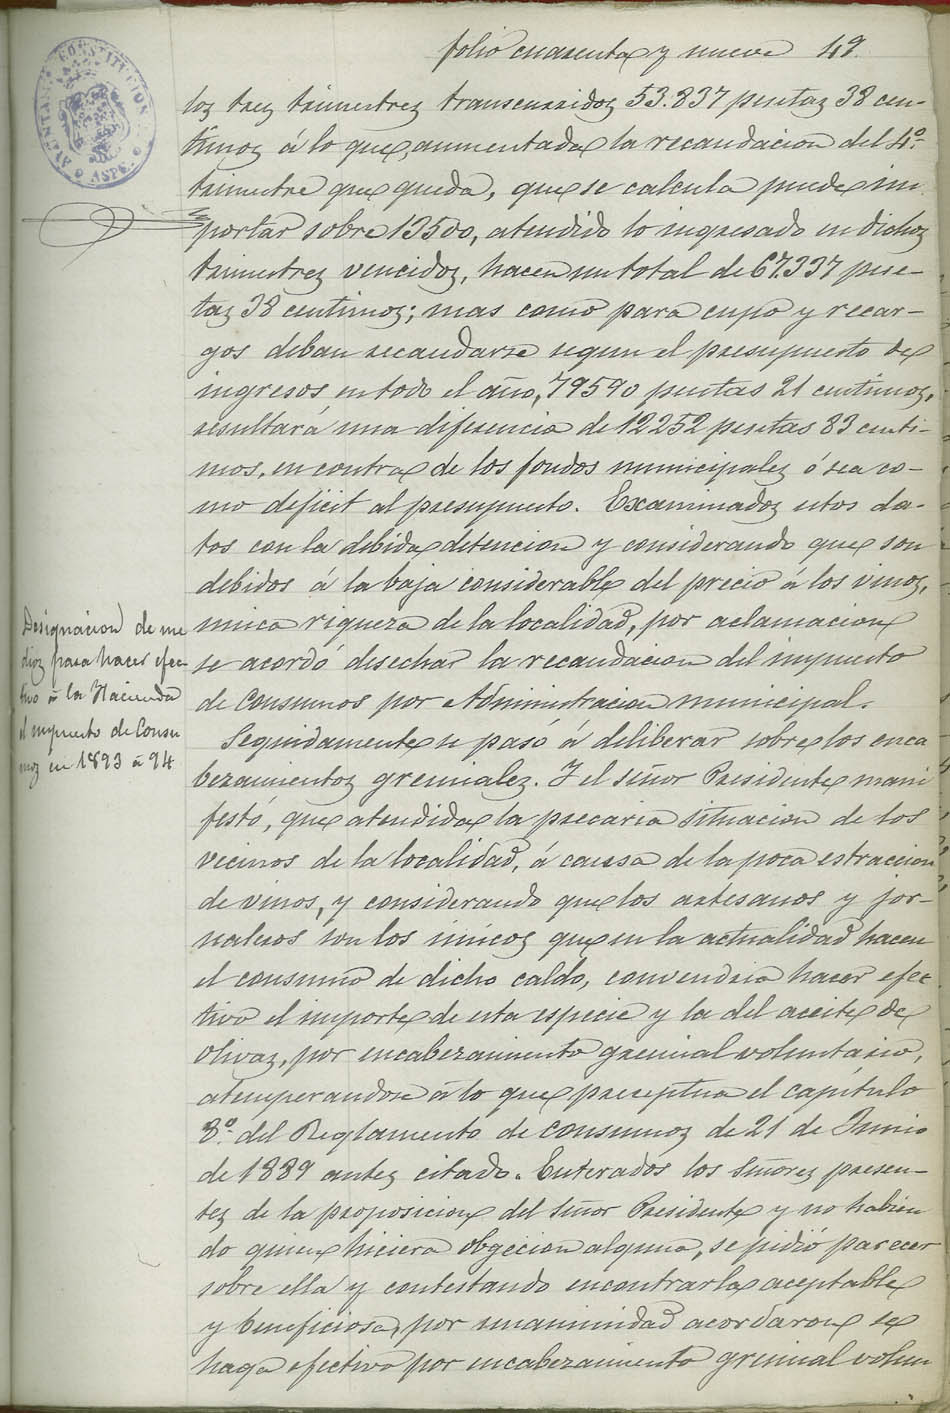 folio cuarenta y nueve 49.
AYUNTAMIENTO CONSTITUCIONAL ASPE
los tres trimestres transcurridos 53.837 pesetas 38 cen-
timos á lo que, aumentada la recaudacion del 4º
trimestre que queda, que se calcula puede im
portar sobre 13500, atendido lo ingresado en dichos
trimestres vencidos, hacen un total de 67.337 pese-
tas 38 centimos; mas como para cupo y recar-
gos deban recaudarse segun el presupuesto de
ingresos en todo el año, 79590 pesetas 21 centimos,
resultará una diferencia de 12252 pesetas 83 centi-
mos, en contra de los fondos municipales ó sea co-
mo deficit al presupuesto. Examinados estos da-
tos con la debida detencion y considerando que son
debidos á la baja considerable del precio á los vinos,
unica riqueza de la localidad, por aclamacion
se acordó desechar la recaudacion del impuesto
de Consumos por Administracion municipal.
Designacion de me
dios para hacer efec
tivo á la Hacienda
el impuesto de Consu
mos en 1893 á 94
Seguidamente se pasó á deliberar sobre los enca
bezamientos gremiales. Y el señor Presidente mani
festó, que atendida la precaria situacion de los
vecinos de la localidad, á caussa de la poca estraccion
de vinos, y considerando que los artesanos y jor-
naleros son los unicos que en la actualidad hacen
el consumo de dicho caldo, convendria hacer efec
tivo el importe de esta especie y la del aceite de
olivas, por encabezamiento gremial voluntario,
atemperandose á lo que preceptua el capítulo
8º del Reglamento de consumos de 21 de Junio
de 1889 antes citado. Enterados los Señores presen-
tes de la proposicion del Señor Presidente y no habien
do quien hiciera obgecion alguna, se pidió parecer
sobre ella y contestando encontrarla aceptable
y beneficiosa, por unanimidad acordaron se
haga efectivo por encabezamiento gremial volun